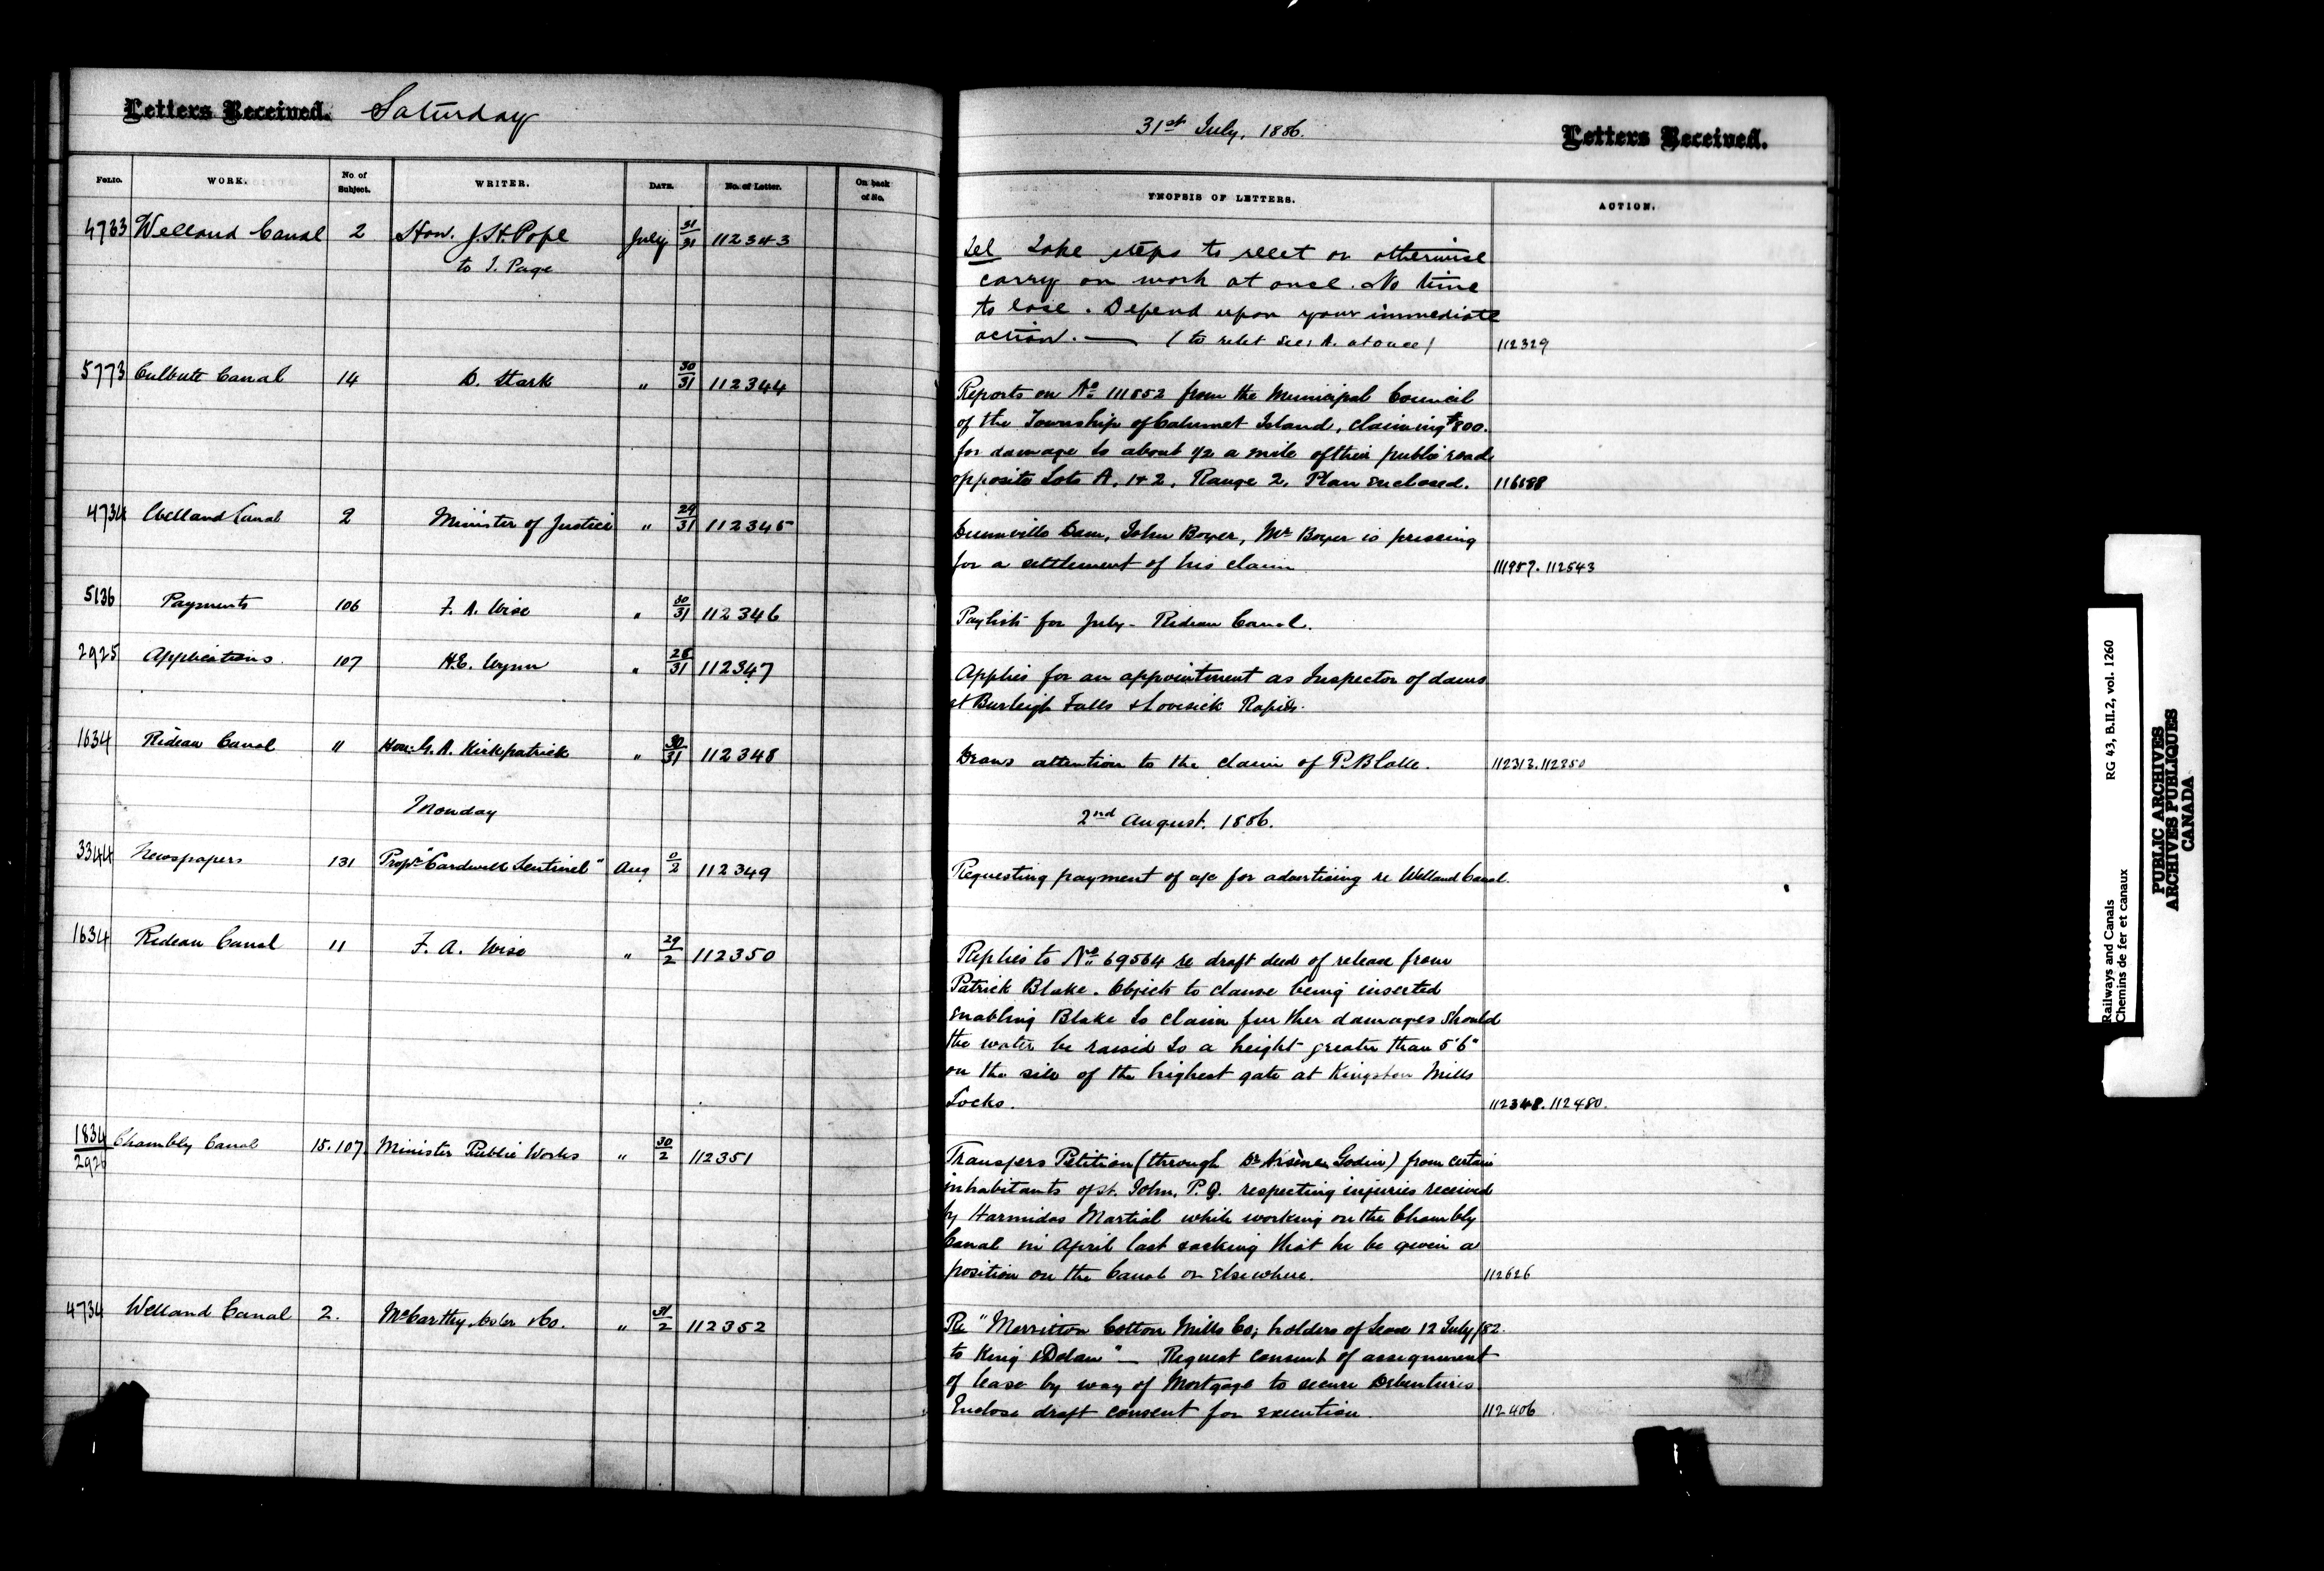 Letters Received. Saturday
31st July, 1886. Letters Received.
FOLIO. WORK. No. of Subject. WRITER. DATE. No. of Letter. On back of No.
SYNOPSIS OF LETTERS. ACTION.
4733 Welland Canal 2 Hon. J.H. Pope July 31/31 112343
to J. Page
Tel Take steps to relet or otherwise
carry on work at once. No time
to lose. Depend upon your immediate
action. — (to relet Sec: A. at once) 112329
5773 Culbute Canal 14 D. Stark " 30/31 112344
Reports on No 111852 from the Municipal Council
of the Township of Calumet Island, claiming $800.
for damage to about 1/2 a mile of their public road
opposite Lots A, 1 & 2, Range 2, Plan Enclosed. 116188
4734 Welland Canal 2 Minister of Justice " 29/31 112345
Dunnville Dam, John Boyer, Mr Boyer is pressing
for a settlement of his claim 111957. 112543
5136 Payments 106 F. A. Wise " 30/31 112346
Paylist for July - Rideau Canal.
2925 Applications. 107 H.E. Wynn " 28/31 112347
Applies for an appointment as Inspector of dams
at Burleigh Falls & Lovesick Rapids.
1634 Rideau Canal 11 Hon: G. A. Kirkpatrick " 30/31 112348
Draws attention to the claim of P. Blake. 112313. 112350
Monday
2nd August. 1886.
3344 Newspapers 131 Propr "Cardwell Sentinel" Aug 0/2 112349
Requesting payment of a/c for advertising re Welland Canal.
1634 Rideau Canal 11 F. A. Wise " 29/2 112350
Replies to No 69564 re draft deed of release from
Patrick Blake. Objects to clause being inserted
Enabling Blake to claim further damages should
the water be raised to a height greater than 5'6"
on the sill of the highest gate at Kingston Mills
Locks. 112348. 112480.
1834/2926 Chambly Canal 15.107 Minister Public Works " 30/2 112351
Transfers Petition (through Dr Arsène Godin) from certain
inhabitants of St. John, P.Q. respecting injuries received
by Harmidas Martial while working on the Chambly
Canal in April last & asking that he be given a
position on the Canal or Elsewhere. 112626
4734 Welland Canal 2. McCarthy, Osler & Co. " 31/2 112352
Re "Merritton Cotton Mills Co; holders of Lease 12 July/82.
to King & Dolan" — Request consent of assignment
of lease by way of Mortgage to secure Debentures
Enclose draft consent for execution. 112406
Railways and Canals RG 43, B.II.2, vol. 1260
Chemins de fer et canaux
PUBLIC ARCHIVES
ARCHIVES PUBLIQUES
CANADA